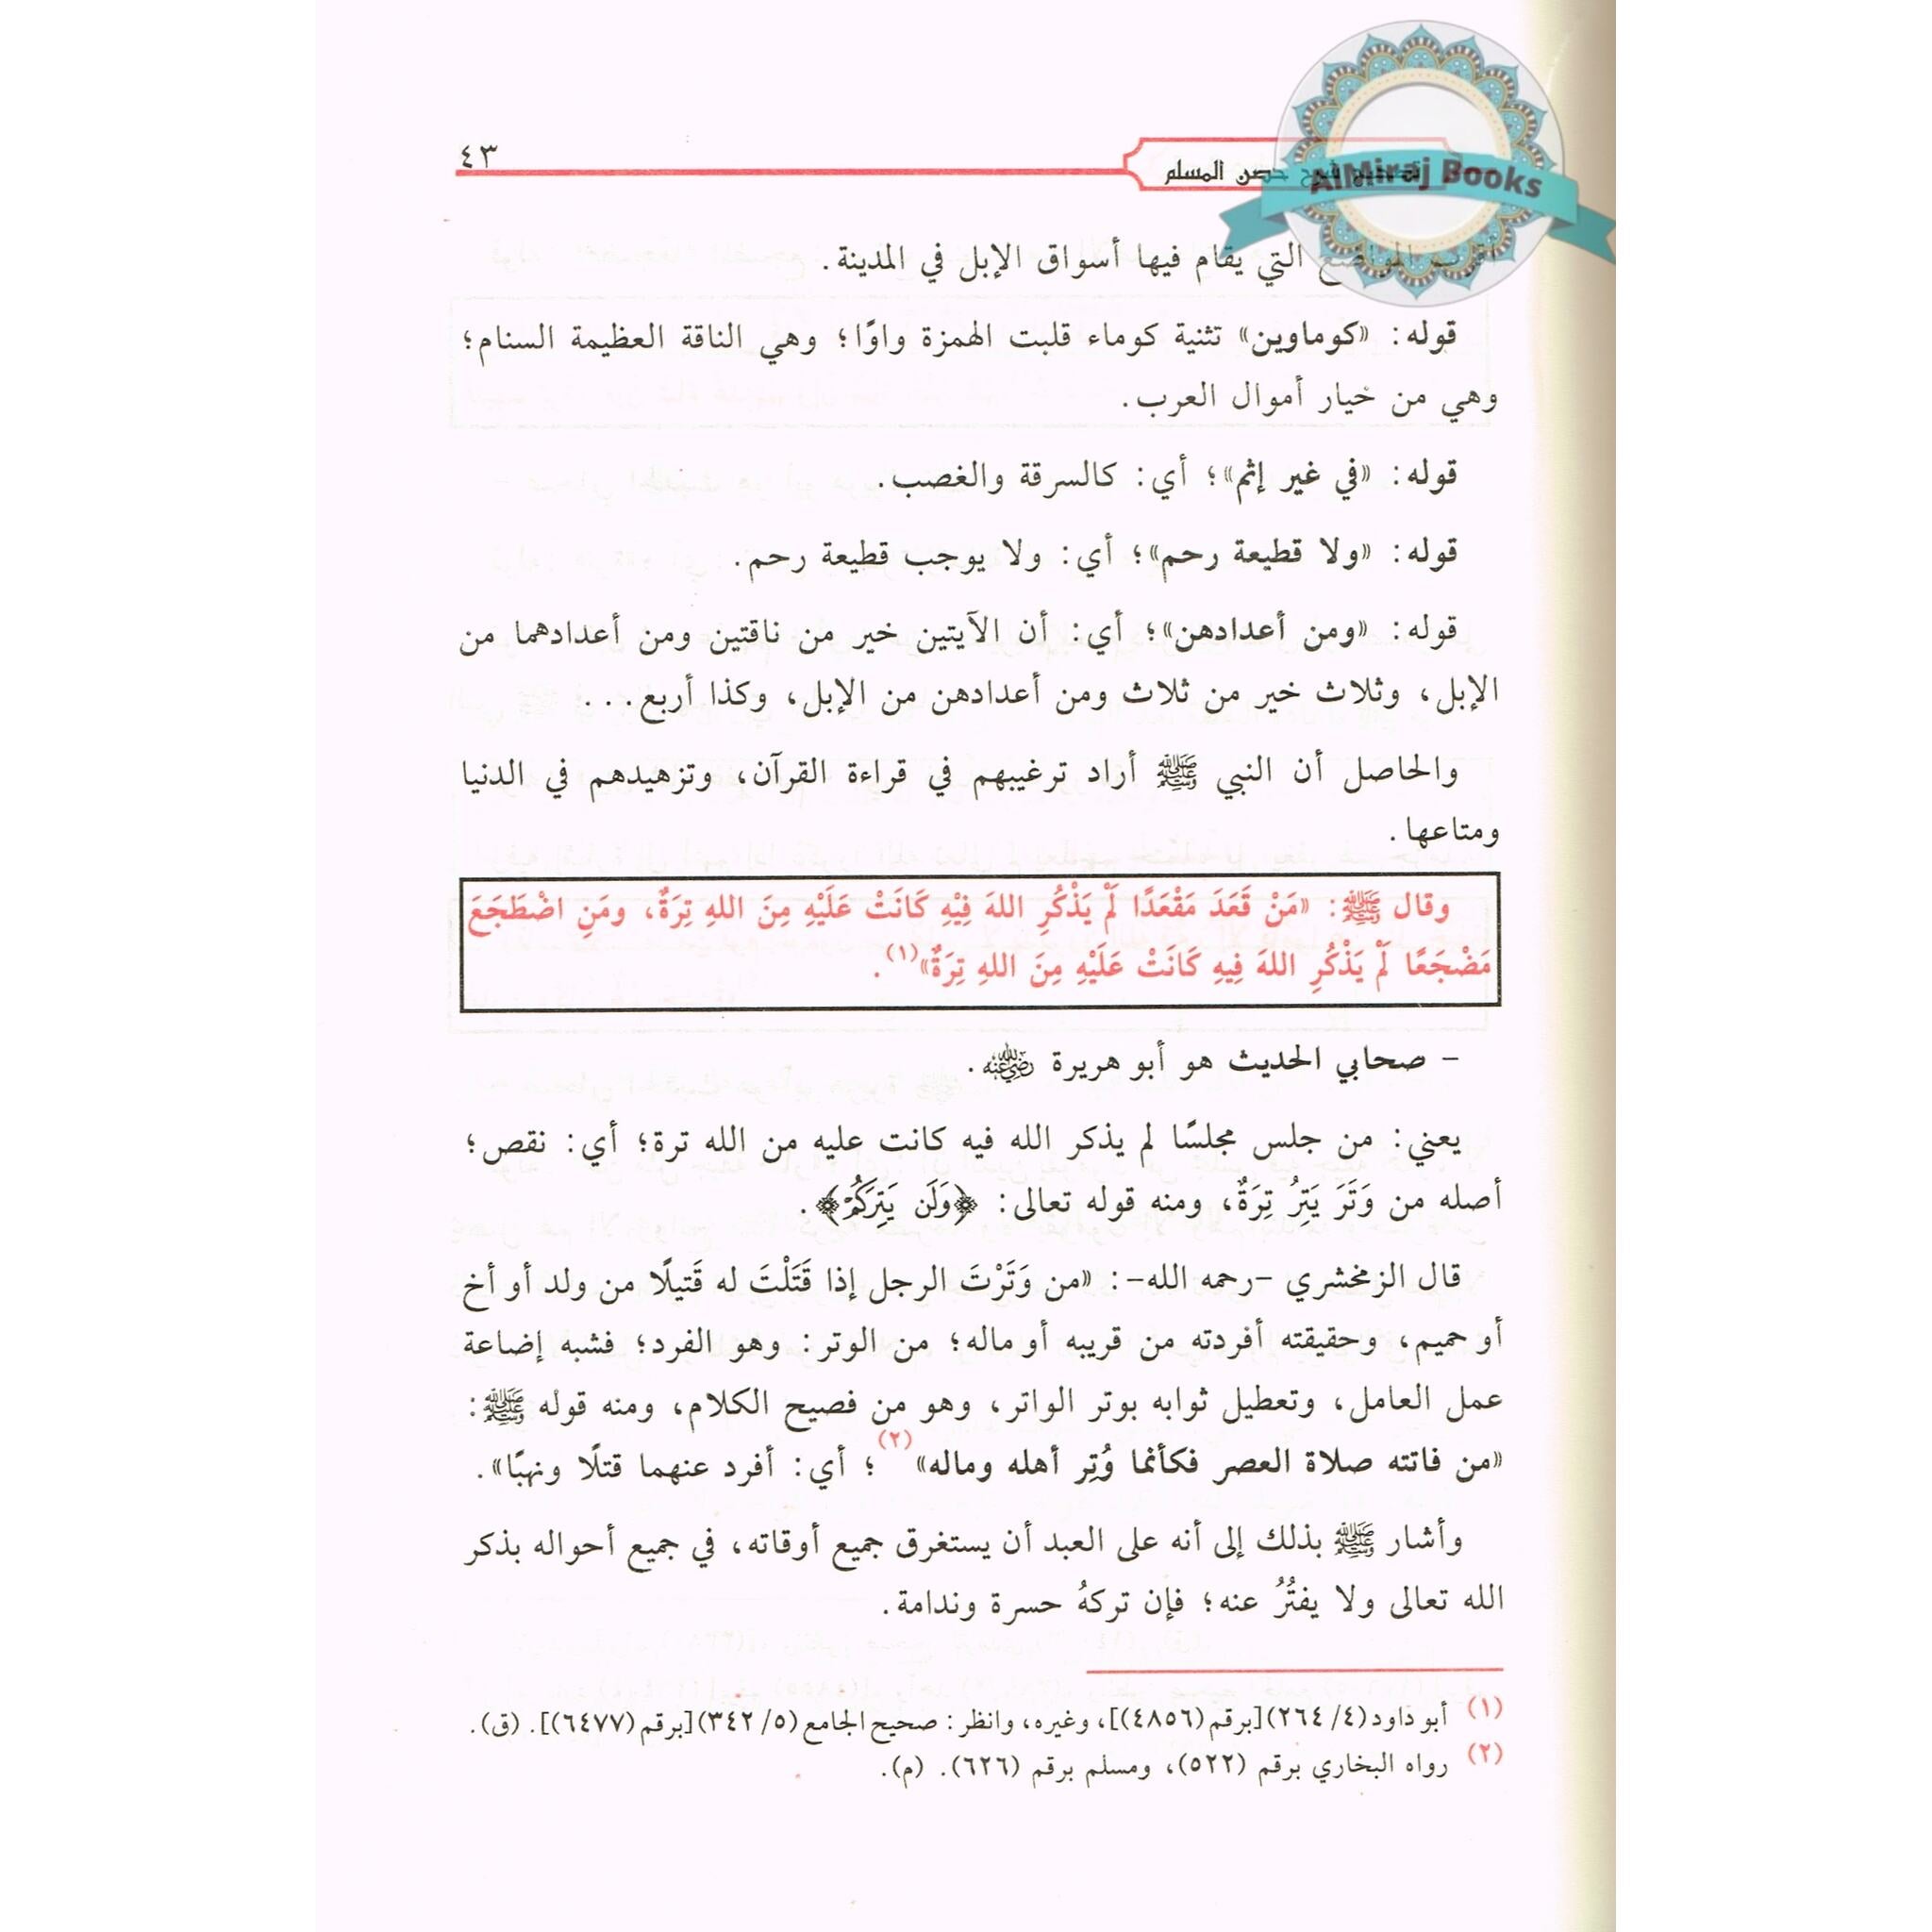 ٤٣
شرح حصن المسلم
AlMiraj Books
التي يقام فيها أسواق الإبل في المدينة.
قوله: «كوماوين» تثنية كوماء قلبت الهمزة واوًا؛ وهي الناقة العظيمة السنام؛
وهي من خيار أموال العرب.
قوله: «في غير إثم»؛ أي: كالسرقة والغصب.
قوله: «ولا قطيعة رحم»؛ أي: ولا يوجب قطيعة رحم.
قوله: «ومن أعدادهن»؛ أي: أن الآيتين خير من ناقتين ومن أعدادهما من
الإبل، وثلاث خير من ثلاث ومن أعدادهن من الإبل، وكذا أربع...
والحاصل أن النبي ﷺ أراد ترغيبهم في قراءة القرآن، وتزهيدهم في الدنيا
ومتاعها.
وقال ﷺ: «مَنْ قَعَدَ مَقْعَدًا لَمْ يَذْكُرِ اللهَ فِيْهِ كَانَتْ عَلَيْهِ مِنَ اللهِ تِرَةٌ، ومَنِ اضْطَجَعَ
مَضْجَعًا لَمْ يَذْكُرِ اللهَ فِيهِ كَانَتْ عَلَيْهِ مِنَ اللهِ تِرَةٌ»(١).
- صحابي الحديث هو أبو هريرة رضي الله عنه.
يعني: من جلس مجلسًا لم يذكر الله فيه كانت عليه من الله ترة؛ أي: نقص؛
أصله من وَتَرَ يَتِرُ تِرَةٌ، ومنه قوله تعالى: ﴿وَلَن يَتِرَكُمْ﴾.
قال الزمخشري -رحمه الله-: «من وَتَرْتَ الرجل إذا قَتَلْتَ له قَتيلًا من ولد أو أخ
أو حميم، وحقيقته أفردته من قريبه أو ماله؛ من الوتر: وهو الفرد؛ فشبه إضاعة
عمل العامل، وتعطيل ثوابه بوتر الواتر، وهو من فصيح الكلام، ومنه قوله ﷺ:
«من فاتته صلاة العصر فكأنما وُتِر أهله وماله»(٢)؛ أي: أفرد عنهما قتلًا ونهبًا».
وأشار ﷺ بذلك إلى أنه على العبد أن يستغرق جميع أوقاته، في جميع أحواله بذكر
الله تعالى ولا يفتُرُ عنه؛ فإن تركهُ حسرة وندامة.
(١) أبو داود (٤/ ٢٦٤) [برقم (٤٨٥٦)]، وغيره، وانظر: صحيح الجامع (٥/ ٣٤٢) [برقم (٦٤٧٧)]. (ق).
(٢) رواه البخاري برقم (٥٢٢)، ومسلم برقم (٦٢٦). (م).